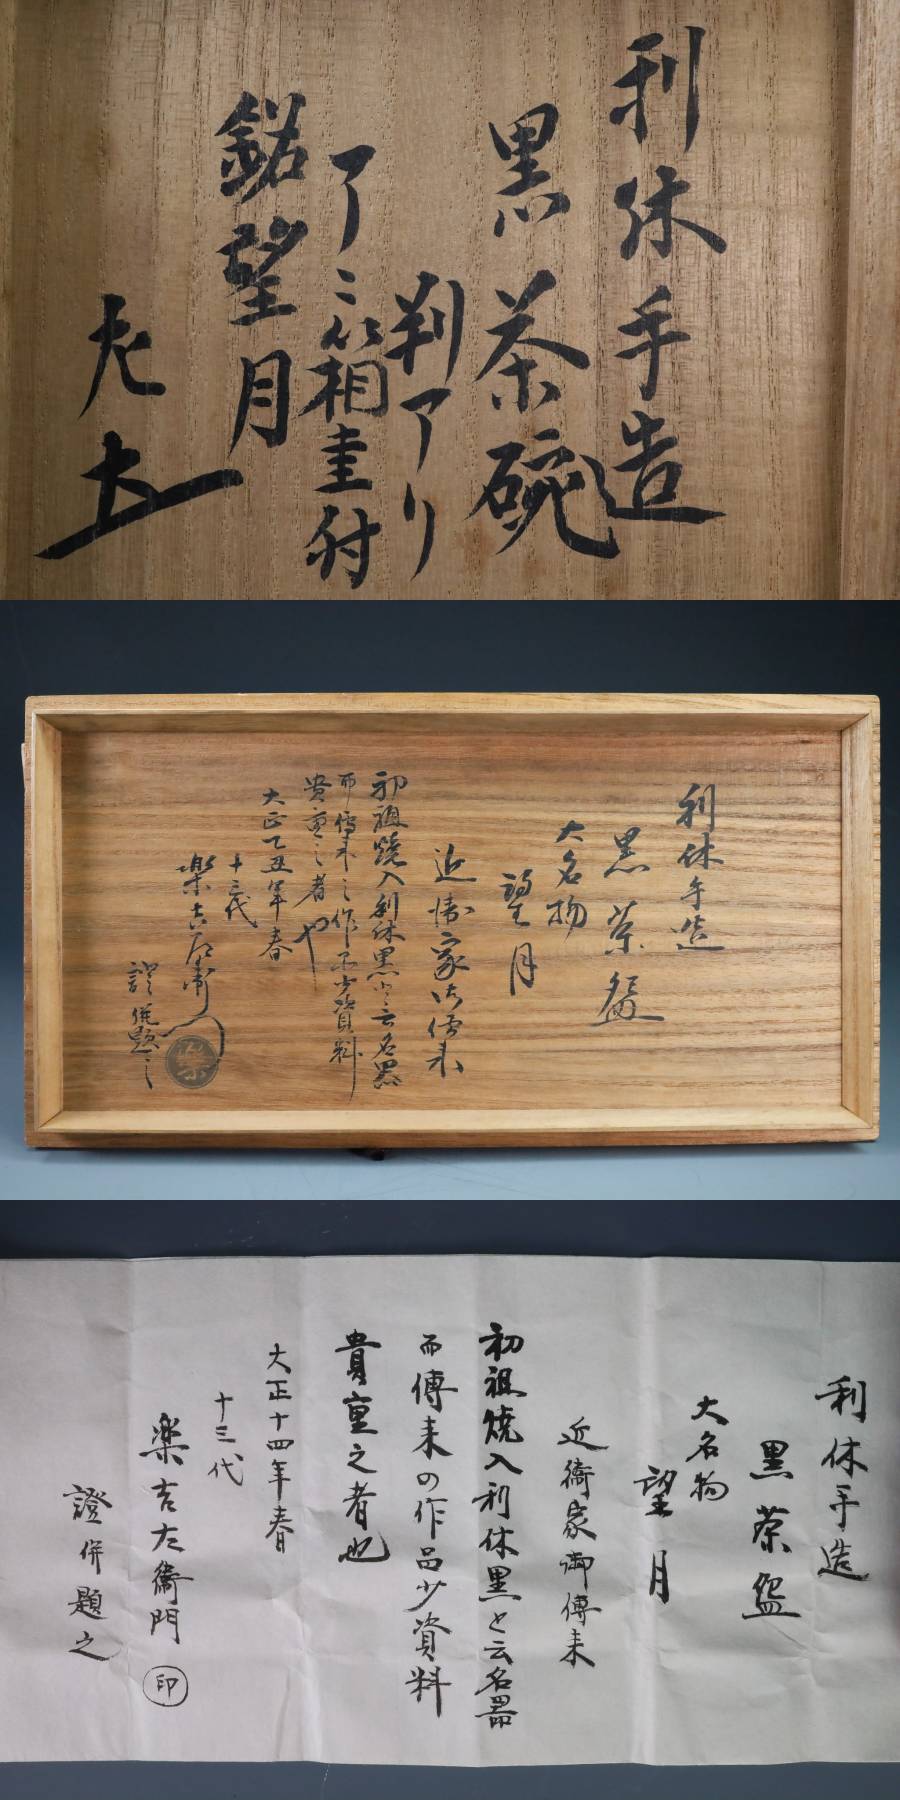 利休手造
黒茶碗
判アリ
了々箱書付
銘望月
左
利休手造
黒茶盌
大名物
望月
近衛家御傳来
初祖焼入利休黒と云名器
而傳来之作品少資料
貴重之者也
大正乙丑年春
十三代
樂吉左衛門
證併題之
樂
利休手造
黒茶盌
大名物
望月
近衛家御傳来
初祖焼入利休黒と云名器
而傳来の作品少資料
貴重之者也
大正十四年春
十三代
楽吉左衛門 印
證併題之